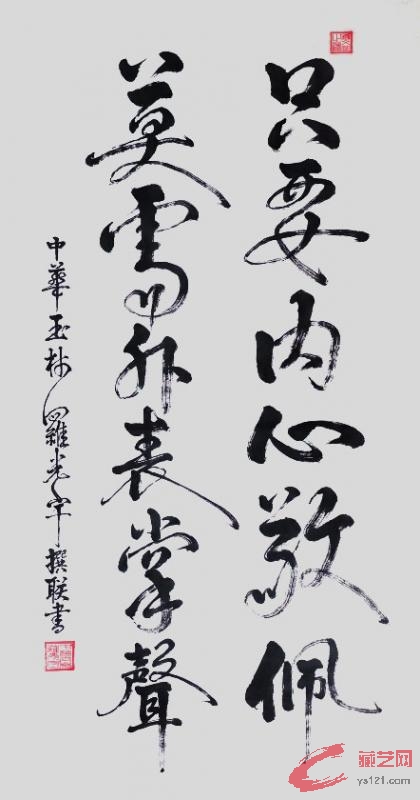 只要内心敬佩
莫需外表掌聲
中華玉林羅光軍撰联書
藏艺网
ys121.com